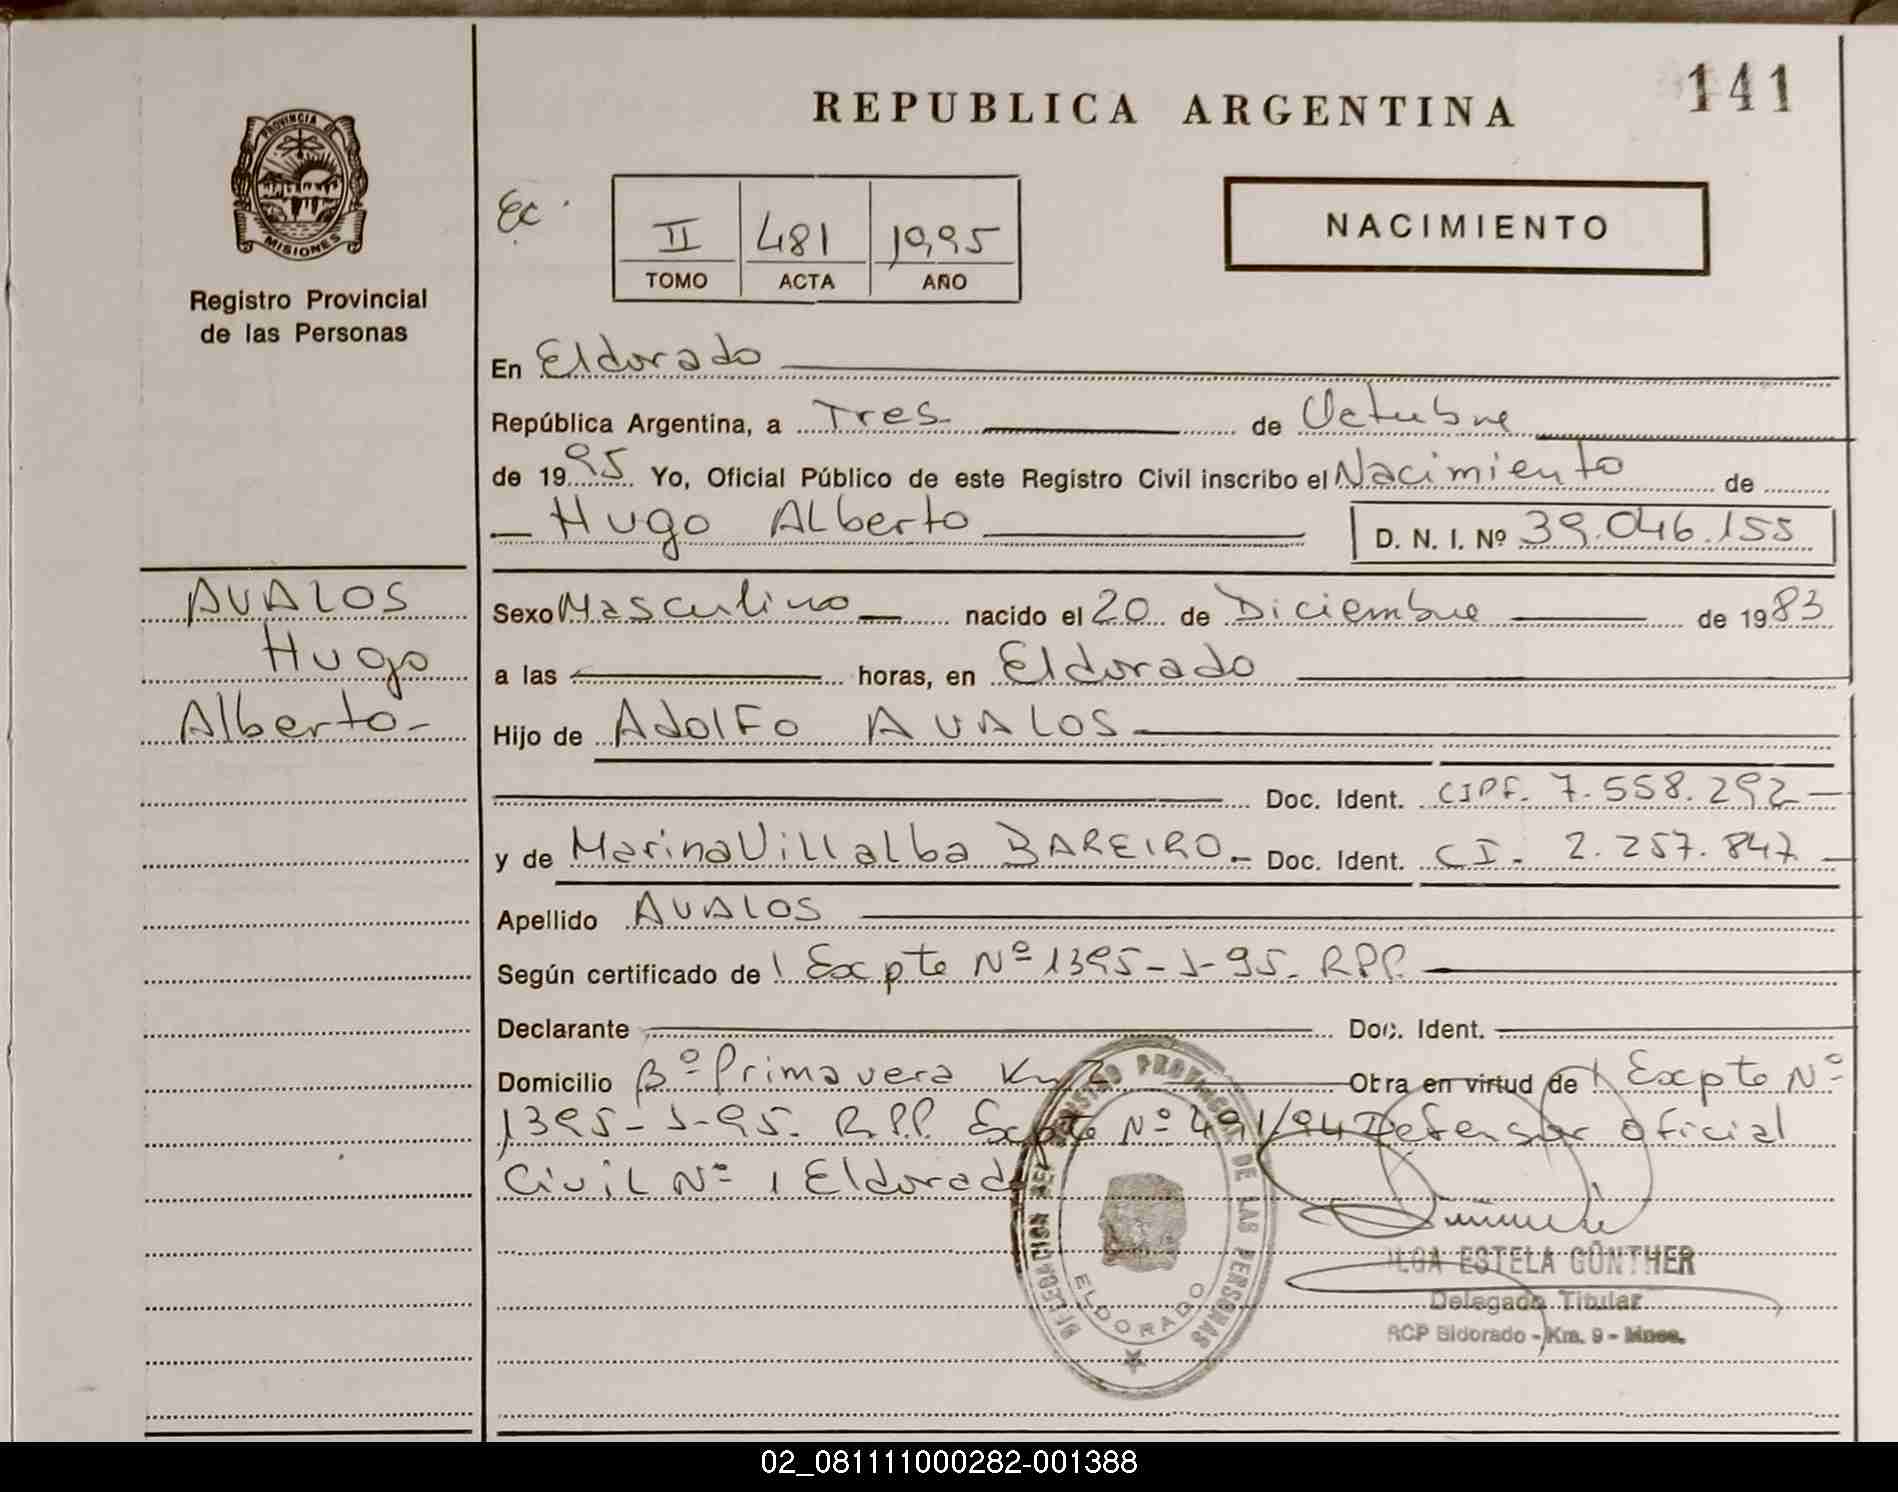 141
REPUBLICA ARGENTINA
PROVINCIA DE
MISIONES
Registro Provincial
de las Personas
Ec.
II 481 1995
TOMO ACTA AÑO
NACIMIENTO
En Eldorado
República Argentina, a Tres de Octubre
de 1995 Yo, Oficial Público de este Registro Civil inscribo el Nacimiento de
Hugo Alberto D. N. I. Nº 39.046.155
AVALOS
Hugo
Alberto-
Sexo Masculino nacido el 20 de Diciembre de 1983
a las horas, en Eldorado
Hijo de Adolfo AVALOS
Doc. Ident. CIPF. 7.558.292
y de Marina Villalba BAREIRO Doc. Ident. CI. 2.257.847
Apellido AVALOS
Según certificado de Expte Nº 1395-J-95. RPP.
Declarante Doc. Ident.
Domicilio Bº Primavera Km 2 Obra en virtud de Expte Nº
1395-J-95. R.P.P. Expte Nº 491/94 Defensor oficial
Civil Nº 1 Eldorado
DELEGACION DEL REGISTRO PROVINCIAL DE LAS PERSONAS
ELDORADO
OLGA ESTELA GÜNTHER
Delegado Titular
RCP Eldorado - Km. 9 - Mnes.
02_081111000282-001388